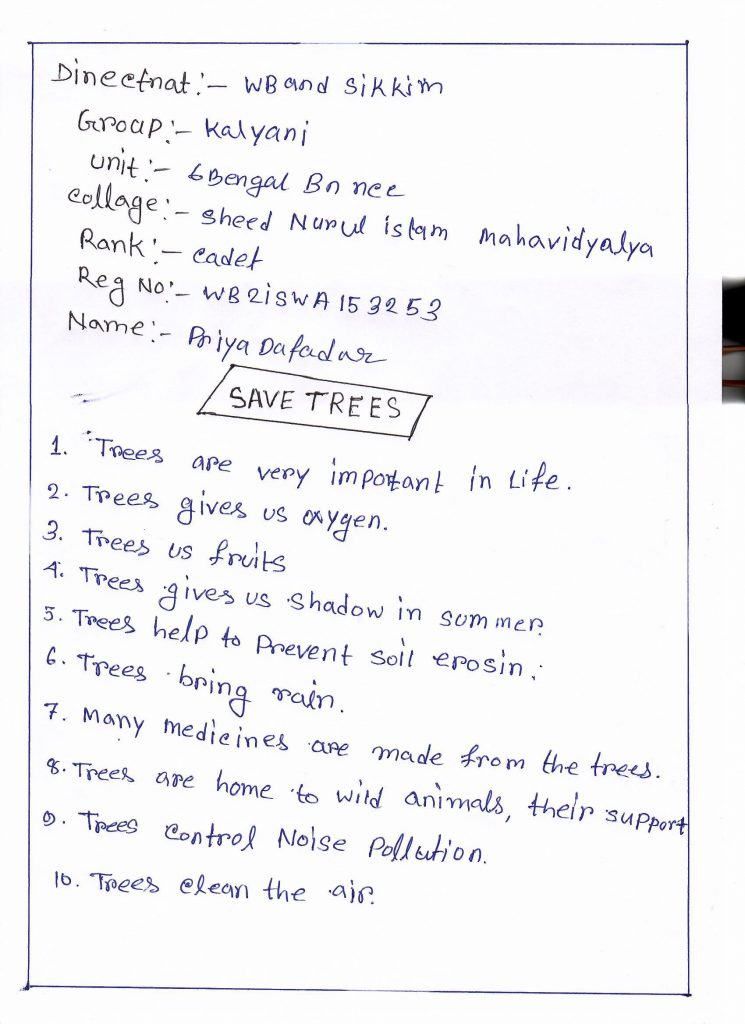 Directnat:- WB and Sikkim
Group:- Kalyani
unit:- 6 Bengal Bn ncc
collage:- Sheed Nurul islam Mahavidyalya
Rank:- cadet
Reg No:- WB21SWA153253
Name:- Priya Dafadar
SAVE TREES
1. Trees are very important in Life.
2. Trees gives us oxygen.
3. Trees us fruits
4. Trees gives us shadow in summer.
5. Trees help to Prevent soil erosin.
6. Trees bring rain.
7. Many medicines are made from the trees.
8. Trees are home to wild animals, their support
9. Trees control Noise Pollution.
10. Trees clean the air.